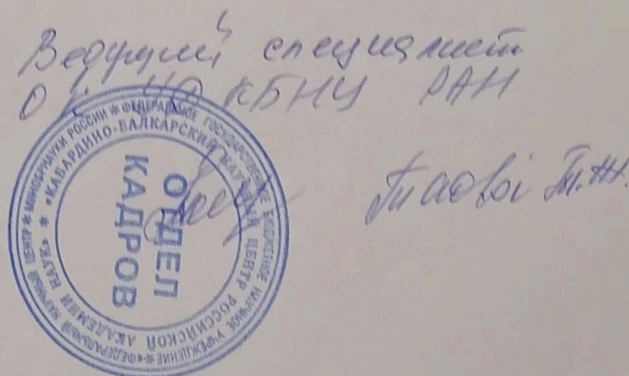 Ведущий специалист
ОК УО КБНЦ РАН
Т.Ж.
МИНОБРНАУКИ РОССИИ * ФЕДЕРАЛЬНОЕ ГОСУДАРСТВЕННОЕ БЮДЖЕТНОЕ НАУЧНОЕ УЧРЕЖДЕНИЕ * «ФЕДЕРАЛЬНЫЙ НАУЧНЫЙ ЦЕНТР *
«КАБАРДИНО-БАЛКАРСКИЙ НАУЧНЫЙ ЦЕНТР РОССИЙСКОЙ АКАДЕМИИ НАУК» *
ОТДЕЛ
КАДРОВ